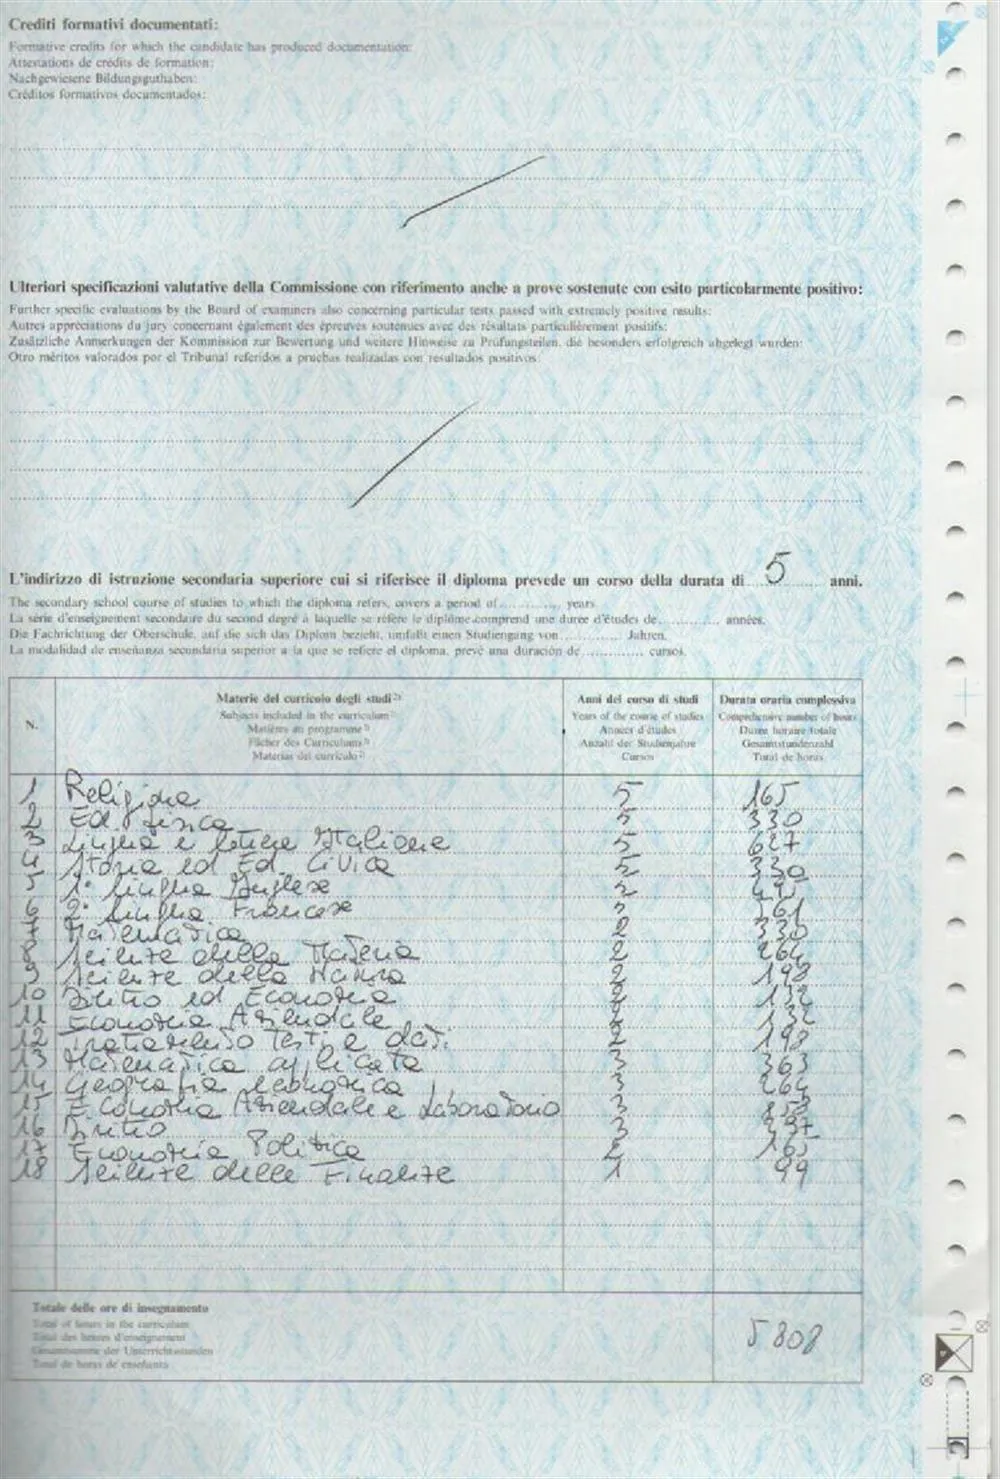 Crediti formativi documentati:
Formative credits for which the candidate has produced documentation:
Attestations de crédits de formation:
Nachgewiesene Bildungsguthaben:
Créditos formativos documentados:
Ulteriori specificazioni valutative della Commissione con riferimento anche a prove sostenute con esito particolarmente positivo:
Further specific evaluations by the Board of examiners also concerning particular tests passed with extremely positive results:
Autres appréciations du jury concernant également des épreuves soutenues avec des résultats particulièrement positifs:
Zusätzliche Anmerkungen der Kommission zur Bewertung und weitere Hinweise zu Prüfungsteilen, die besonders erfolgreich abgelegt wurden:
Otro méritos valorados por el Tribunal referidos a pruebas realizadas con resultados positivos:
L'indirizzo di istruzione secondaria superiore cui si riferisce il diploma prevede un corso della durata di 5 anni.
The secondary school course of studies to which the diploma refers, covers a period of .............. years.
La série d'enseignement secondaire du second degré à laquelle se réfère le diplôme comprend une durée d'études de .............. années.
Die Fachrichtung der Oberschule, auf die sich das Diplom bezieht, umfaßt einen Studiengang von .............. Jahren.
La modalidad de enseñanza secundaria superior a la que se refiere el diploma, prevé una duración de .............. cursos.
N. Materie del curricolo degli studi 2) Anni del corso di studi Durata oraria complessiva
Subjects included in the curriculum Years of the course of studies Comprehensive number of hours
Matières au programme Années d'études Durée horaire totale
Fächer des Curriculums Anzahl der Studienjahre Gesamtstundenzahl
Materias del currículo Cursos Total de horas
1 Religione 5 165
2 Ed. fisica 5 330
3 Lingua e lettere Italiane 5 627
4 Storia ed Ed. Civica 5 330
5 1° lingua Inglese 5
6 2° lingua Francese 5
7 Matematica 2 330
8 Scienze della Materia 2 264
9 Scienze della Natura 2 198
10 Diritto ed Economia 2 132
11 Economia Aziendale 2 132
12 Trattamento Testi e dati. 2 198
13 Matematica applicata 3 363
14 Geografia economica 3 264
15 Economia Aziendale e Laboratorio 3
16 Diritto 3 297
17 Economia Politica 2 165
18 Scienze delle Finanze 1 99
Totale delle ore di insegnamento
Total of hours in the curriculum
Total des heures d'enseignement
Gesamtsumme der Unterrichtsstunden
Total de horas de enseñanza
5808